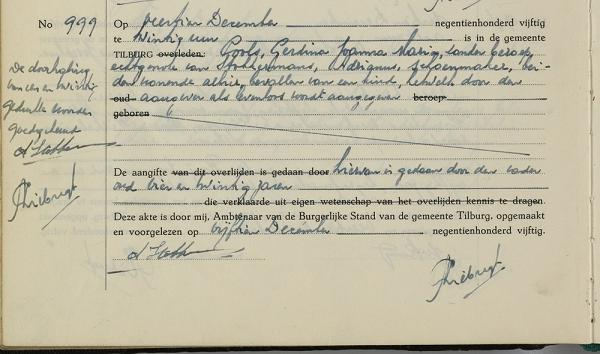 No 999
Op veertien December negentienhonderd vijftig
te twintig uur is in de gemeente
TILBURG overleden: Pools, Gerdina Joanna Maria, zonder beroep,
echtgenote van Stokkermans, Adrianus, schoenmaker, bei-
den wonende alhier, bevallen van een kind, hetwelk door den
oud aangever als levenloos wordt aangegeven beroep
geboren
De doorhaling
van en twintig
gedrukte woorden
goedgekeurd
De aangifte van dit overlijden is gedaan door hiervan is gedaan door den vader
oud vier en twintig jaren
die verklaarde uit eigen wetenschap van het overlijden kennis te dragen.
Deze akte is door mij, Ambtenaar van de Burgerlijke Stand van de gemeente Tilburg, opgemaakt
en voorgelezen op vijftien December negentienhonderd vijftig.